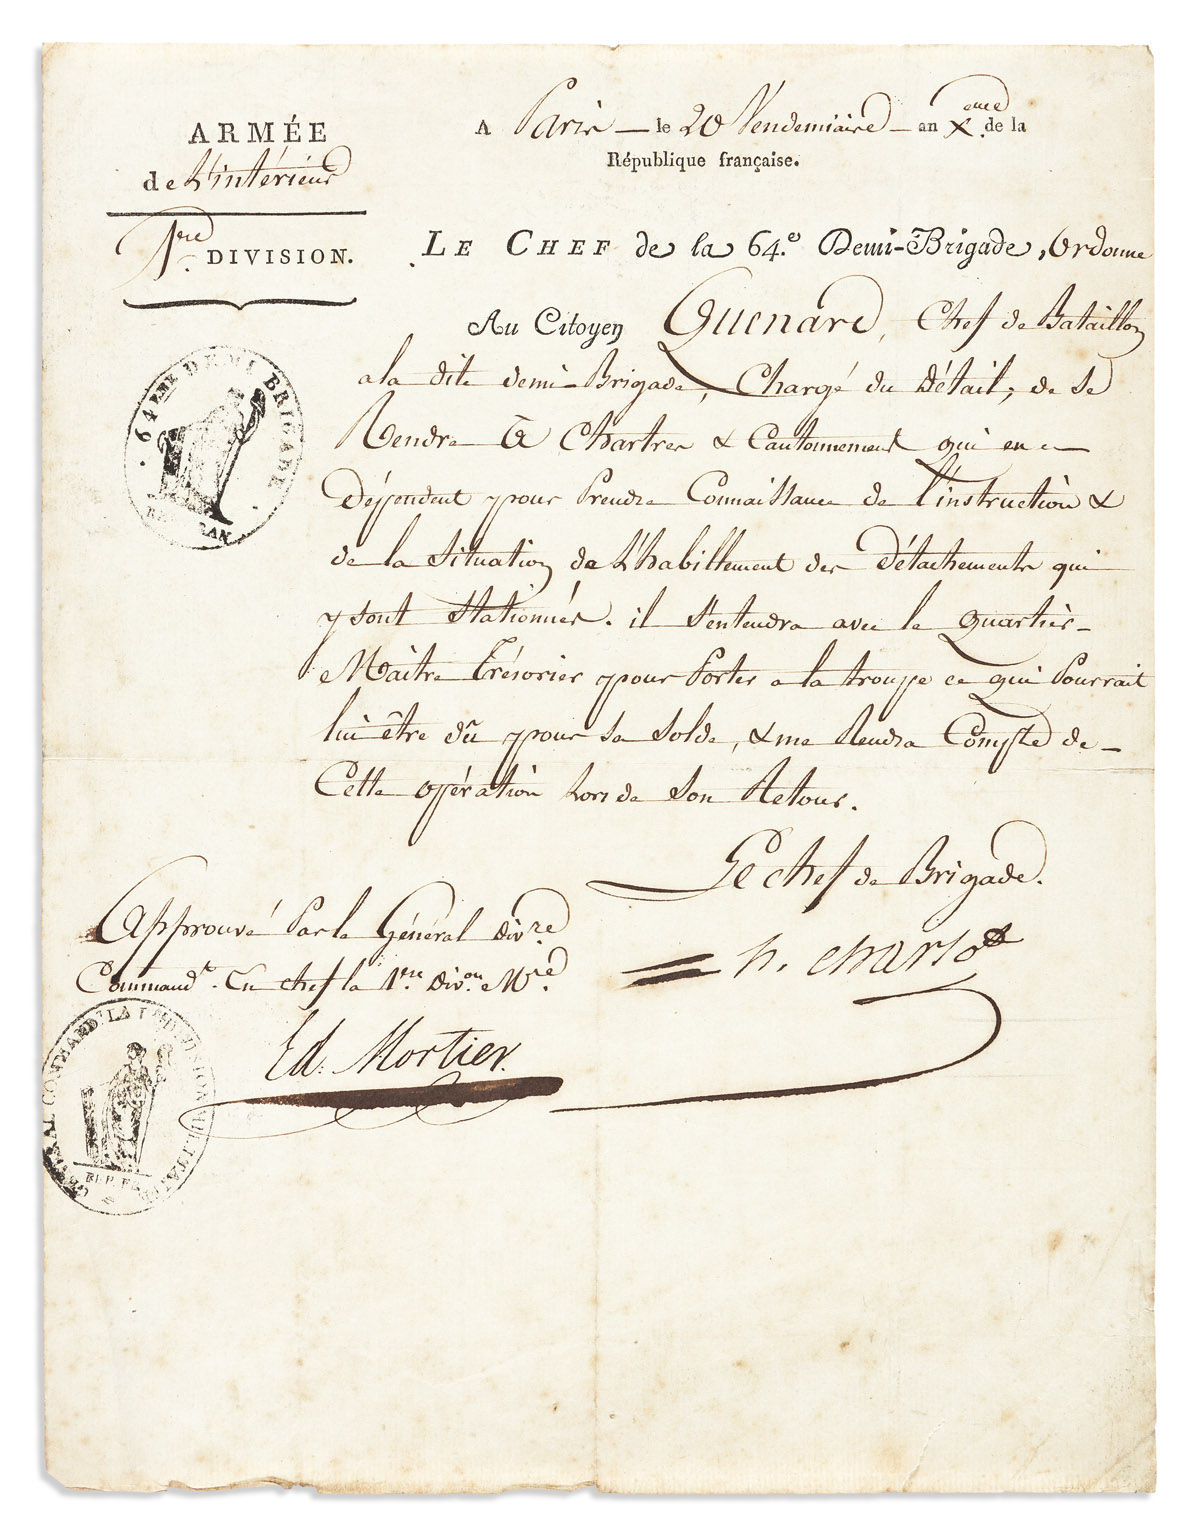 ARMÉE
de L'intérieur
1re DIVISION.
A Paris le 20 Vendemiaire an Xeme de la
République française.
LE CHEF de la 64.e Demi-Brigade, Ordonne
Au Citoyen Quenard, Chef de Bataillon
a la dite demi-Brigade, Chargé du Détail, de Se
Rendre à Chartres & Cantonnement qui en
Dépendent pour Prendre Connaissance de l'instruction &
de la Situation de L'habillement des Détachements qui
y sont Stationnés. il S'entendra avec le Quartier-
Maitre Trésorier pour Porter a la troupe ce qui Pourrait
lui être dû pour sa Solde, & me Rendra Compte de
Cette opération Lors de Son Retour.
Le chef de Brigade.
h. Charlot
Approuvé Par le Général Divre
Commandt. En chef la 1re. Divon. Mre.
Ed. Mortier.
64EME DEMI BRIGADE
GENERAL COMMAND. LA 1E DIVISION MILITAIRE
REP. FR